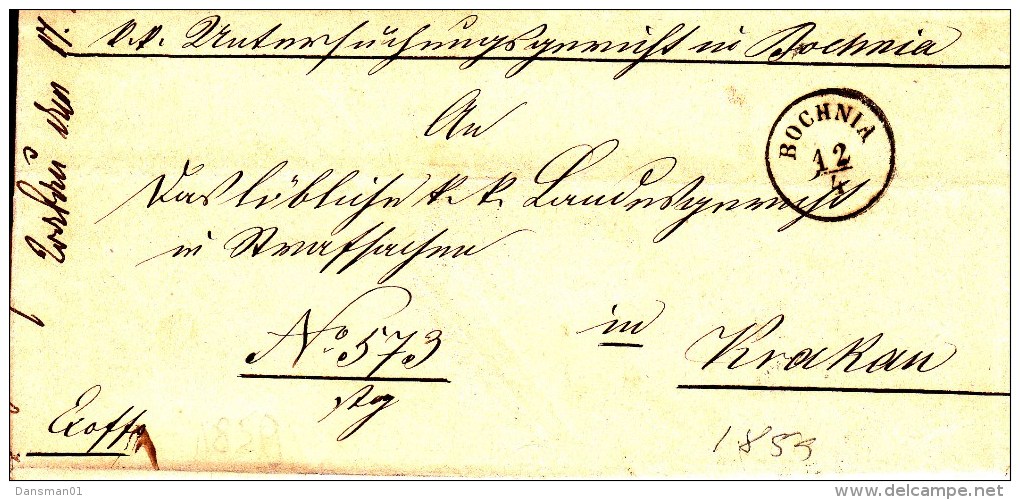 k.k. Untersuchungsgericht in Bochnia
An
BOCHNIA
12/4
Das löbliche k.k. Landesgericht
in Strafsachen
No. 573
in
Krakau
Exoffo
1859
Dansman01
delcampe.net